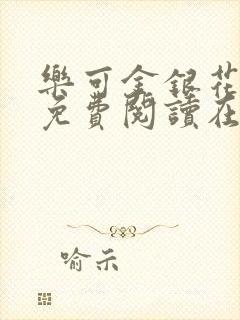 樂可金銀花
免費閱讀在
喻示